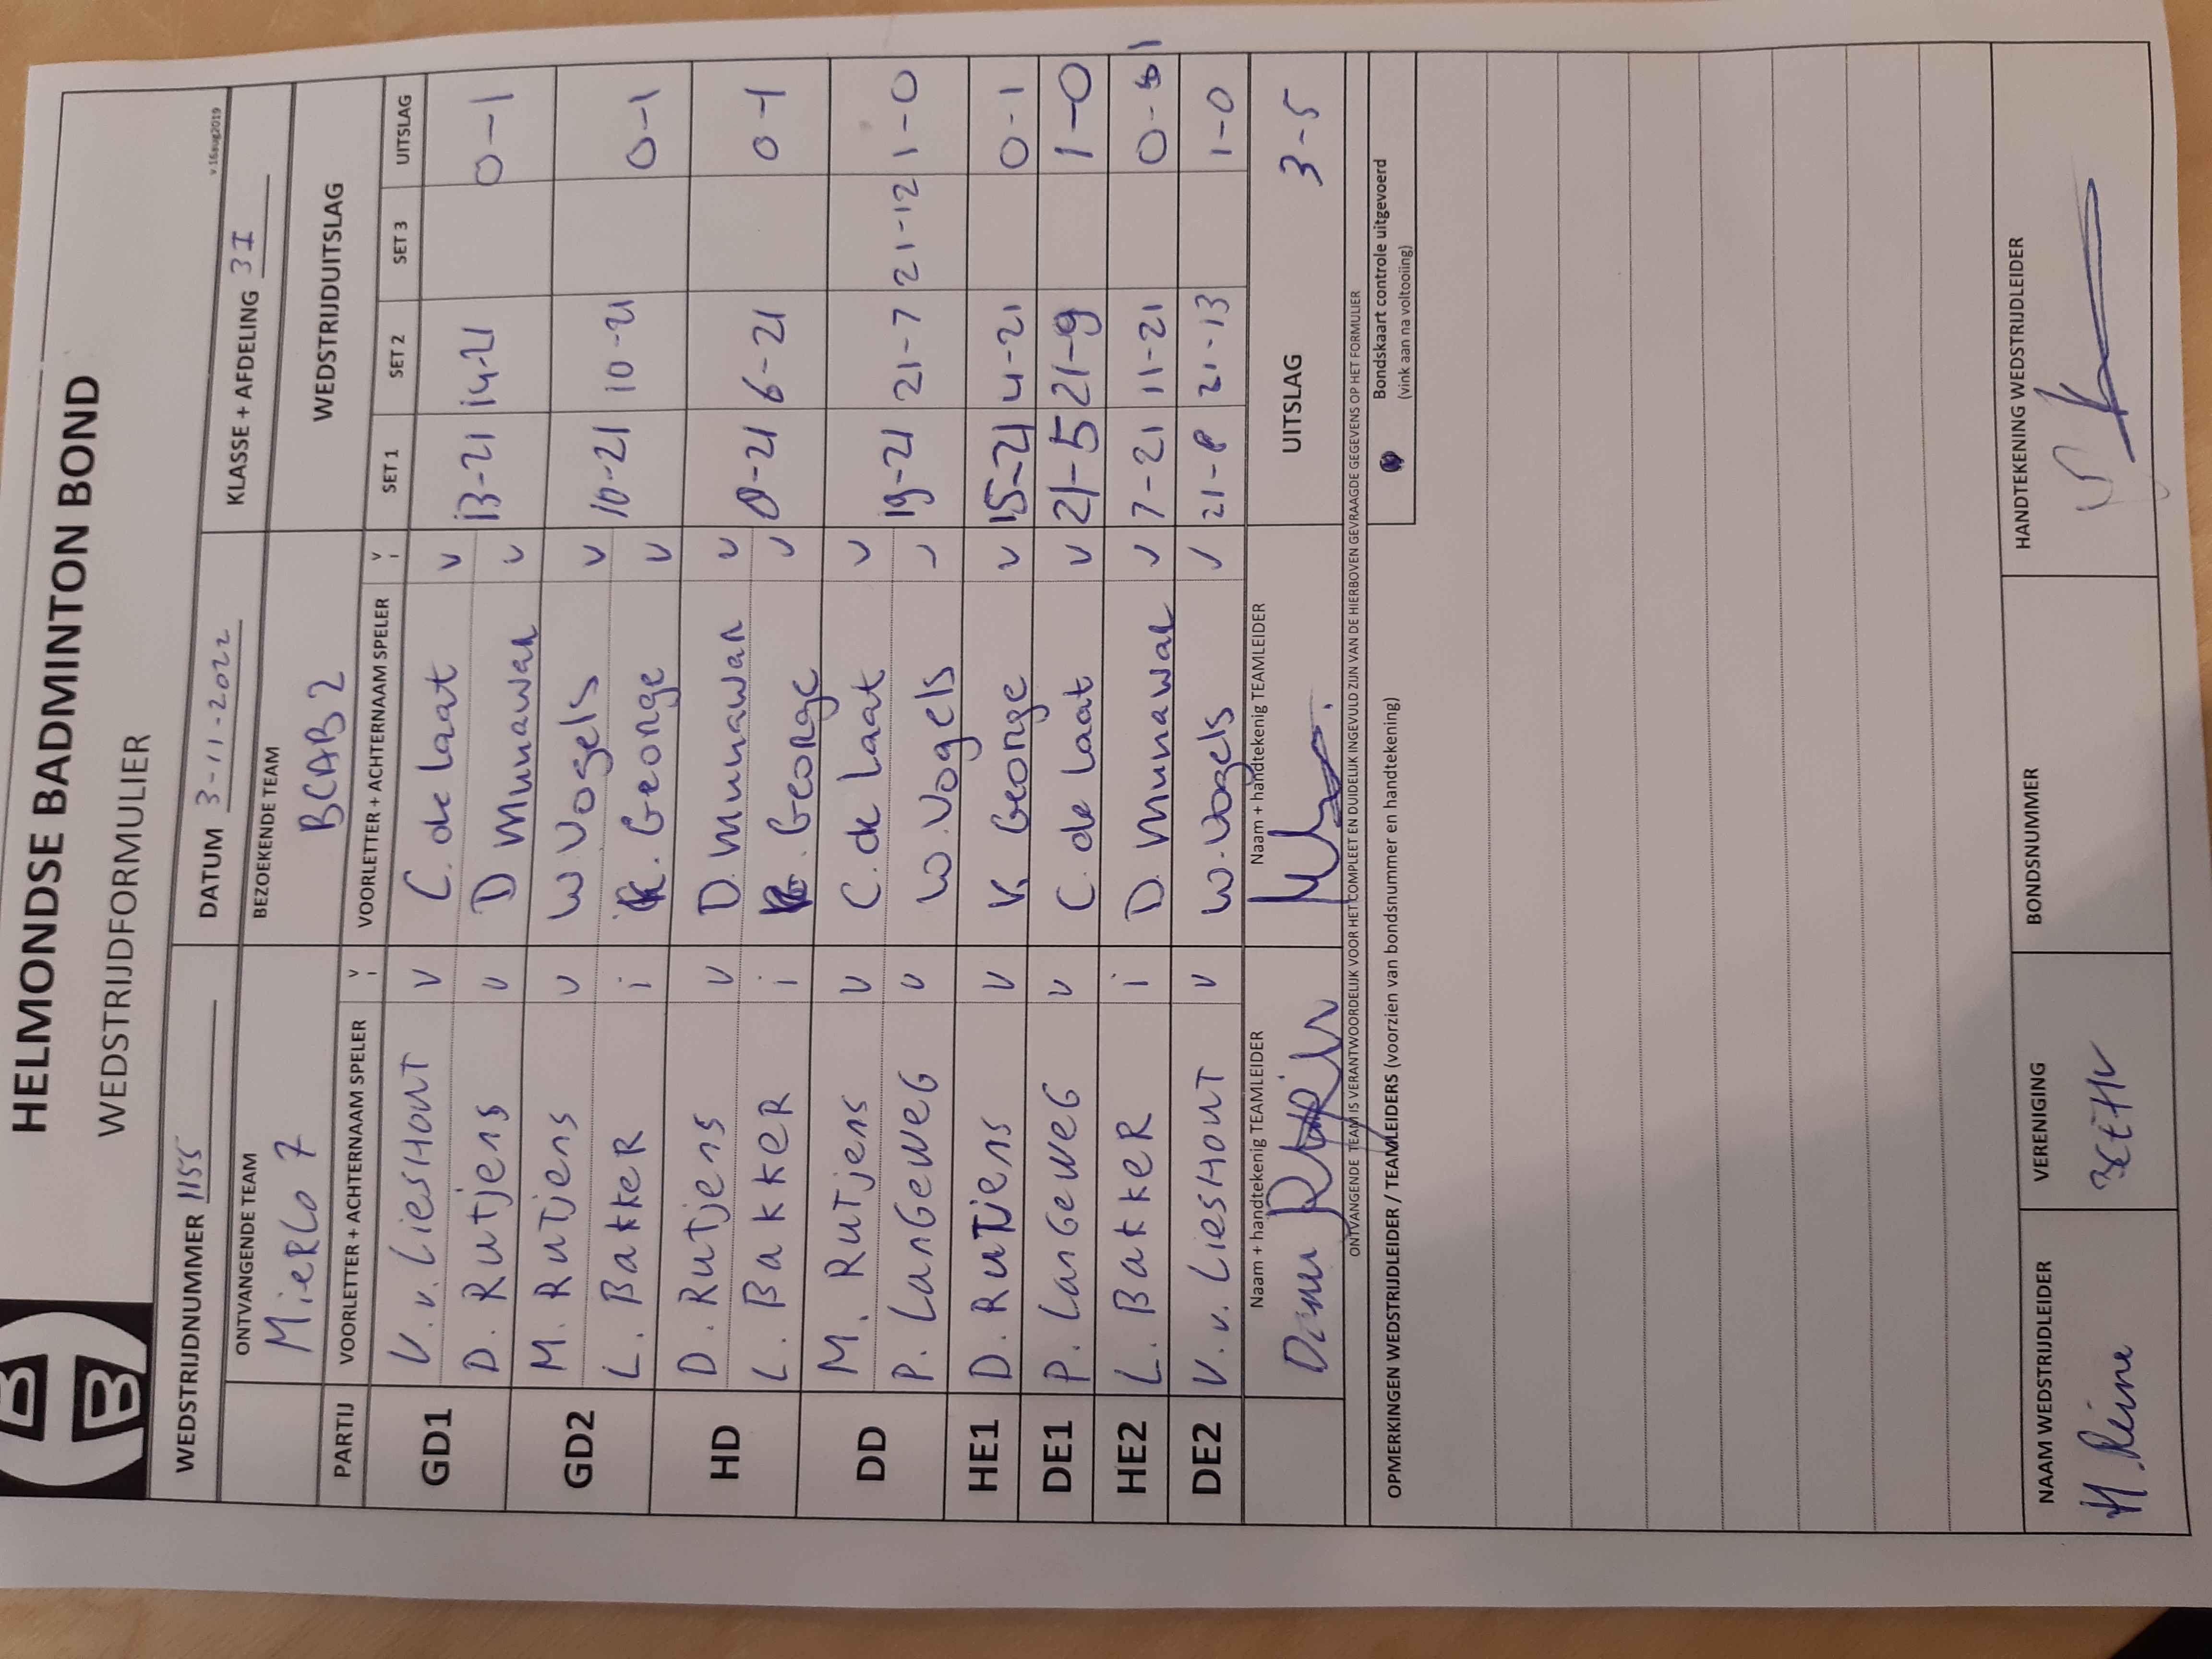 HELMONDSE BADMINTON BOND
WEDSTRIJDFORMULIER
v.16aug2019
WEDSTRIJDNUMMER 1155 DATUM 3-11-2022 KLASSE + AFDELING 3I
ONTVANGENDE TEAM BEZOEKENDE TEAM WEDSTRIJDUITSLAG
MieRLo 7 BCAB 2
PARTIJ VOORLETTER + ACHTERNAAM SPELER V i VOORLETTER + ACHTERNAAM SPELER V i SET 1 SET 2 SET 3 UITSLAG
GD1 V. v. LiesHouT V C. de Laat V
D. Rutjens V D Munawar V 13-21 14-21 0-1
GD2 M. RuTjens V W. Vogels V
L. BakkeR i K. George V 10-21 10-21 0-1
HD D. RuTjens V D. Munawar V
L. BakkeR i K. George V 8-21 6-21 0-1
DD M. RuTjens V C. de Laat V
P. LanGeweG V W. Vogels V 19-21 21-7 21-12 1-0
HE1 D. RuTjens V K. George V 15-21 4-21 0-1
DE1 P. LanGeweG V C. de Laat V 21-5 21-9 1-0
HE2 L. BakkeR i D. Munawar V 7-21 11-21 0-1
DE2 V. v. LiesHouT V W. Vogels V 21-8 21-13 1-0
Naam + handtekenig TEAMLEIDER Naam + handtekenig TEAMLEIDER UITSLAG 3-5
ONTVANGENDE TEAM IS VERANTWOORDELIJK VOOR HET COMPLEET EN DUIDELIJK INGEVULD ZIJN VAN DE HIERBOVEN GEVRAAGDE GEGEVENS OP HET FORMULIER
OPMERKINGEN WEDSTRIJDLEIDER / TEAMLEIDERS (voorzien van bondsnummer en handtekening) Bondskaart controle uitgevoerd
(vink aan na voltooiing)
NAAM WEDSTRIJDLEIDER VERENIGING BONDSNUMMER HANDTEKENING WEDSTRIJDLEIDER